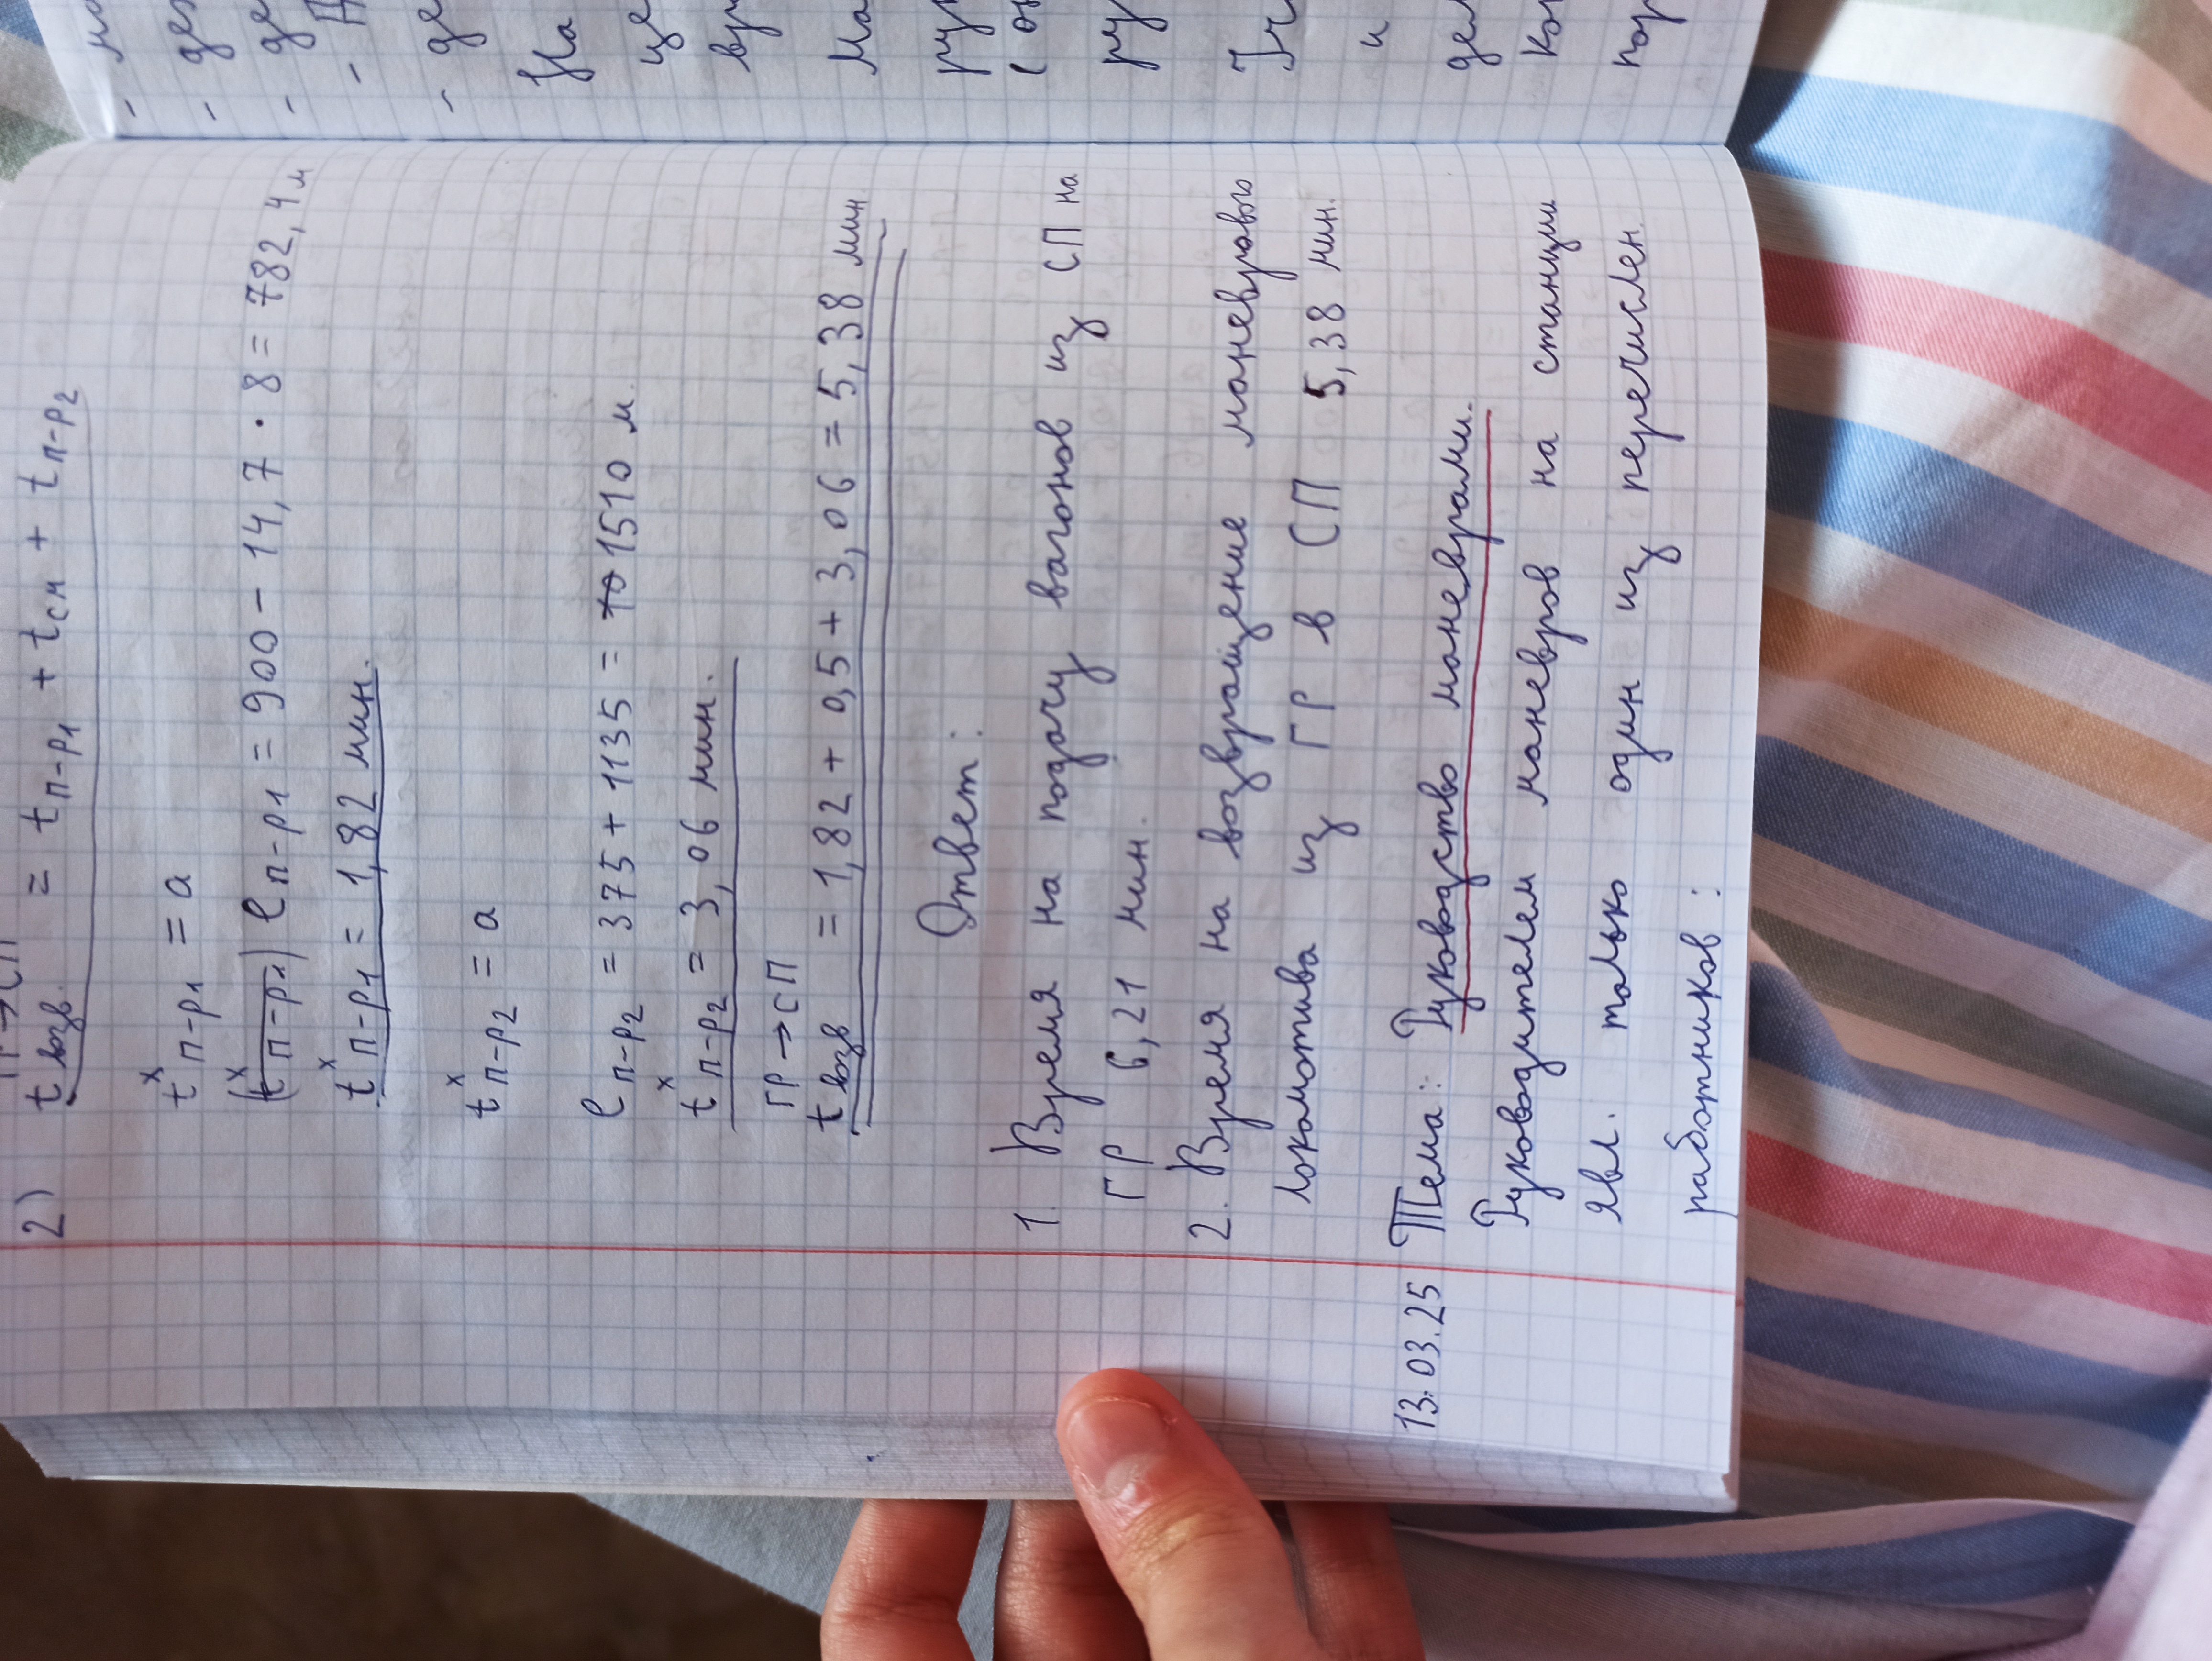 2) t возв. = tп-р1 + tсм + tп-р2
tˣп-р1 = а
ℓп-р1 = 900 - 14,7 · 8 = 782,4 м
tˣп-р1 = 1,82 мин.
tˣп-р2 = а
ℓп-р2 = 375 + 1135 = 1510 м.
tˣп-р2 = 3,06 мин.
ГР→СП
t возв = 1,82 + 0,5 + 3,06 = 5,38 мин.
Ответ:
1. Время на подачу вагонов из СП на
ГР 6,21 мин.
2. Время на возвращение маневрового
локомотива из ГР в СП 5,38 мин.
13.03.25 Тема: Руководство маневрами.
Руководителем маневров на станции
явл. только один из перечислен.
работников: